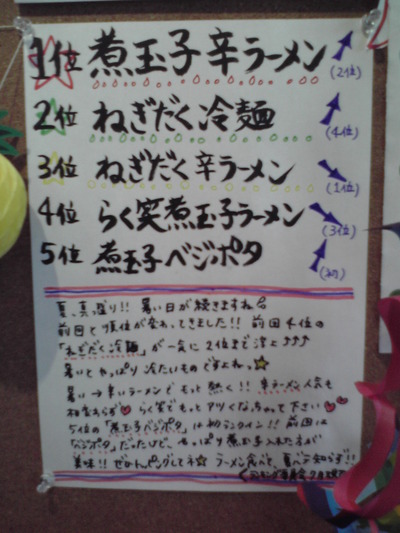 1位 煮玉子辛ラーメン (2位)
2位 ねぎだく冷麺 (4位)
3位 ねぎだく辛ラーメン (1位)
4位 らく笑煮玉子ラーメン (3位)
5位 煮玉子ベジポタ (初)
夏、真っ盛り!! 暑い日が続きますね
前回と順位が変わってきました!! 前回4位の
「ねぎだく冷麺」が一気に2位まで浮上♪♪♪
暑いとやっぱり冷たいものですよねっ
暑い→辛いラーメンでもっと熱く!! 辛ラーメン人気も
相変わらず らく笑でもっとアツくなっちゃって下さい
5位の「煮玉子ベジポタ」は初ランクイン!! 前回は
「ベジポタ」だったけど、やっぱり煮玉子入れた方が
美味!! ぜひトッピングしてネ ラーメン食べて、夏バテ知らず!!